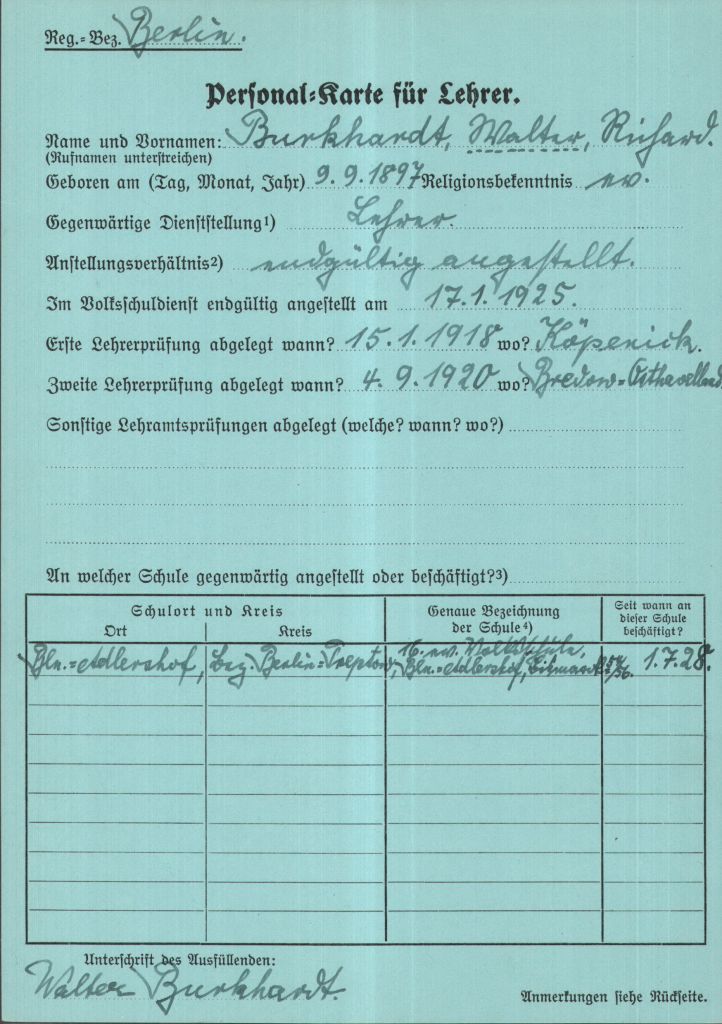 Reg.=Bez. Berlin.
Personal=Karte für Lehrer.
Name und Vornamen: Burkhardt, Walter, Richard.
(Rufnamen unterstreichen)
Geboren am (Tag, Monat, Jahr) 9.9.1897 Religionsbekenntnis ev.
Gegenwärtige Dienststellung¹) Lehrer.
Anstellungsverhältnis²) endgültig angestellt.
Im Volksschuldienst endgültig angestellt am 17.1.1925.
Erste Lehrerprüfung abgelegt wann? 15.1.1918 wo? Köpenick.
Zweite Lehrerprüfung abgelegt wann? 4.9.1920 wo? Bredow=Osthavelland
Sonstige Lehramtsprüfungen abgelegt (welche? wann? wo?)
An welcher Schule gegenwärtig angestellt oder beschäftigt?³)
Schulort und Kreis
Ort Kreis
Genaue Bezeichnung
der Schule⁴)
Seit wann an
dieser Schule
beschäftigt?
Bln.=Adlershof, bez. Berlin=Treptow, 16. ev. Volksschule,
Bln.=Adlershof, 1.7.28.
Unterschrift des Ausfüllenden:
Walter Burkhardt.
Anmerkungen siehe Rückseite.